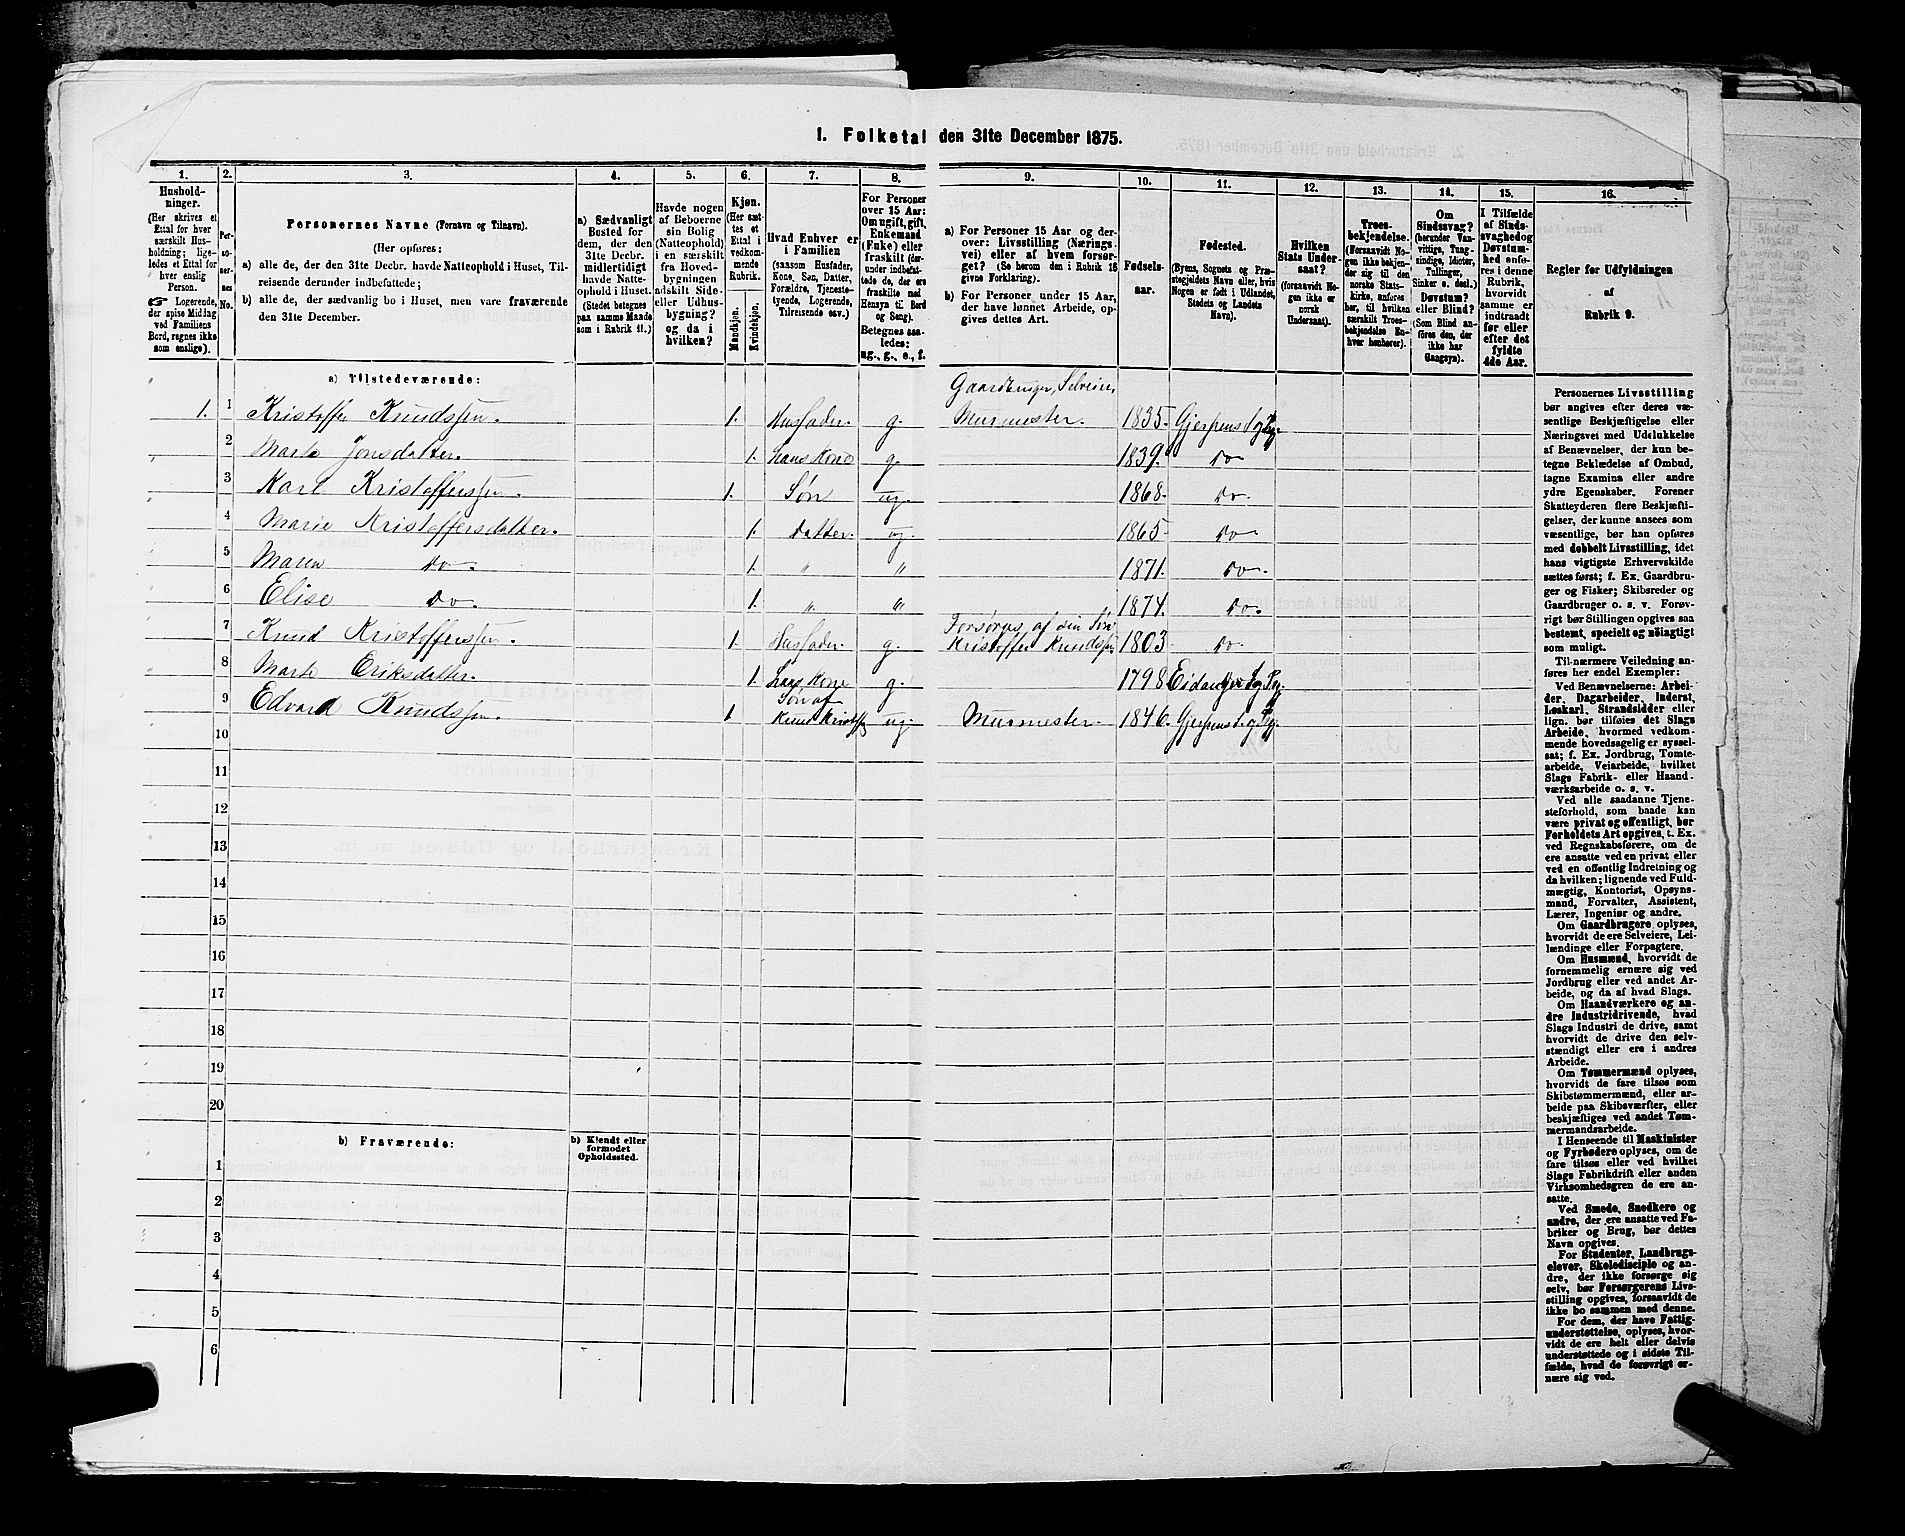 1. Folketal den 31te December 1875.
1. 2. 3. 4. 5. 6. 7. 8. 9. 10. 11. 12. 13. 14. 15. 16.
Hushold-
ninger.
(Her skrives et
Ettal for hver
særskilt Hus-
holdning; lige-
ledes et Ettal for
hver enslig
Person.
☞ Logerende,
der spise Middag
ved Familiens
Bord, regnes ikke
som enslige).
Per-
so-
ner-
nes
No.
Personernes Navne (Fornavn og Tilnavn).
(Her opføres:
a) alle de, der den 31te Decbr. havde Natteophold i Huset, Til-
reisende derunder indbefattede;
b) alle de, der sædvanlig bo i Huset, men vare fraværende
den 31te December.
a) Sædvanligt
Bosted for
dem, der den
31te Decbr.
midlertidigt
havde Natte-
ophold i Huset.
(Stedet betegnes
paa samme Maade
som i Rubrik 11.)
Havde nogen
af Beboerne
sin Bolig
(Natteophold)
i en særskilt
fra Hoved-
bygningen
adskilt Side-
eller Udhus-
bygning?
og da i
hvilken?
Kjøn.
(Her sæt-
tes et
Ettal i
vedkom-
mende
Rubrik.
Mandkjøn.
Kvindekjøn.
Hvad Enhver er
i Familien
(saasom Husfader,
Kone, Søn, Datter,
Forældre, Tjeneste-
tyende, Logerende,
Tilreisende osv.)
For Personer
over 15 Aar:
Om ugift, gift,
Enkemand
(Enke) eller
fraskilt (der-
under indbefat-
tede de, der ere
fraskilte med
Hensyn til Bord
og Seng).
Betegnes saa-
ledes:
ug., g., e., f.
a) For Personer 15 Aar og der-
over: Livsstilling (Nærings-
vei) eller af hvem forsør-
get? (Se herom den i Rubrik 16
givne Forklaring).
b) For Personer under 15 Aar,
der have lønnet Arbeide, op-
gives dettes Art.
Fødsels-
aar.
Fødested.
(Byens, Sognets og Præ-
stegjeldets Navn eller, hvis
Nogen er født i Udlandet,
Stedets og Landets
Navn).
Hvilken
Stats Under-
saat?
(forsaavidt No-
gen ikke er
norsk
Undersaat).
Troes-
bekjendelse.
(Forsaavidt No-
gen ikke bekjen-
der sig til den
norske Stats-
kirke, anføres
her, til hvilken
særskilt Troes-
bekjendelse En-
hver henhører).
Om
Sindssvag?
(herunder Van-
vittige, Tung-
sindige, Idioter,
Tullinger,
Sinker o. desl.)
Døvstum?
eller Blind?
(Som Blind an-
føres den, der
ikke har
Gangsyn).
I Tilfælde
af Sinds-
svaghed og
Døvstum-
hed anfø-
res i denne
Rubrik,
hvorvidt
samme er
indtraadt
før eller
efter det
fyldte
4de Aar.
Regler for Udfyldningen
af
Rubrik 9.
a) Tilstedeværende:
Gaardbruger, Selveier,
1. 1 Kristoffer Knudssen. 1. Husfader. g. Murmester. 1835. Gjerpens S og Pg.
2 Marte Jonsdatter. 1. hans Kone g. 1839. Do
3 Karl Kristofferssen. 1. Søn ug. 1868. Do.
4 Marie Kristoffersdatter. 1. Datter. ug. 1865. Do
5 Maren Do. 1. " " 1871. Do.
6 Elise Do. 1. " " 1874. Do.
Forsørges af sin Søn
7 Knud Kristofferssen. 1. Husfader. g. Kristoffer Knudssen 1803. Do
8 Marte Eriksdatter. 1. hans Kone g. 1798 Eidanger S og Pg.
Søn af
9 Edvard Knudssen. 1 Knud Kristoffs. ug. Murmester. 1846. Gjerpens S. og Pg.
10
11
12
13
14
15
16
17
18
19
20
b) Fraværende:
b) Kjendt eller
formodet
Opholdssted.
1
2
3
4
5
6
Personernes Livsstilling
bør angives efter deres væ-
sentlige Beskjæftigelse eller
Næringsvei med Udelukkelse
af Benævnelser, der kun be-
tegne Beklædelse af Ombud,
tagne Examina eller andre
ydre Egenskaber. Forener
Skatteyderen flere Beskjæfti-
gelser, der kunne ansees som
væsentlige, bør han opføres
med dobbelt Livsstilling, idet
hans vigtigste Erhvervskilde
sættes først; f. Ex. Gaardbru-
ger og Fisker; Skibsreder og
Gaardbruger o. s. v. Forøv-
rigt bør Stillingen opgives saa
bestemt, specielt og nøiagtigt
som muligt.
Til nærmere Veiledning an-
føres her endel Exempler:
Ved Benævnelserne: Arbei-
der, Dagarbeider, Inderst,
Løskarl, Strandsidder eller
lign. bør tilføies det Slags
Arbeide, hvormed vedkom-
mende hovedsagelig er syssel-
sat; f. Ex. Jordbrug, Tomte-
arbeide, Veiarbeide, hvilket
Slags Fabrik- eller Haand-
værksarbeide o. s. v.
Ved alle saadanne Tjene-
steforhold, som baade kan
være privat og offentligt, bør
Forholdets Art opgives, t. Ex.
ved Regnskabsførere, om de
ere ansatte ved en privat eller
ved en offentlig Indretning og
da hvilken; lignende ved Fuld-
mægtig, Kontorist, Opsyns-
mand, Forvalter, Assistent,
Lærer, Ingeniør og andre.
Om Gaardbrugere oplyses,
hvorvidt de ere Selveiere, Lei-
lændinge eller Forpagtere.
Om Husmænd, hvorvidt de
fornemmelig ernære sig ved
Jordbrug eller ved andet Ar-
beide, og da af hvad Slags.
Om Haandværkere og an-
dre Industridrivende, hvad
Slags Industri de drive, samt
hvorvidt de drive den selv-
stændigt eller ere i andres
Arbeide.
Om Tømmermænd oplyses,
hvorvidt de fare tilsøs som
Skibstømmermænd, eller ar-
beide paa Skibsværfter, eller
beskjæftiges ved andet Tøm-
mermandsarbeide.
I Henseende til Maskinister
og Fyrbødere oplyses, om de
fare tilsøs eller ved hvilket
Slags Fabrikdrift eller anden
Virksomhedsgren de ere an-
satte.
Ved Smede, Snedkere og
andre, der ere ansatte ved Fa-
briker og Brug, bør dettes
Navn opgives.
For Studenter, Landbrugs-
elever, Skoledisciple og an-
dre, der ikke forsørge sig
selv, bør Forsørgerens Livs-
stilling opgives, forsaavidt de
ikke bo sammen med denne.
For dem, der have Fattig-
understøttelse, oplyses, hvor-
vidt de ere helt eller delvis
understøttede og i sidste Til-
fælde, hvad de forøvrigt er-
nære sig ved.